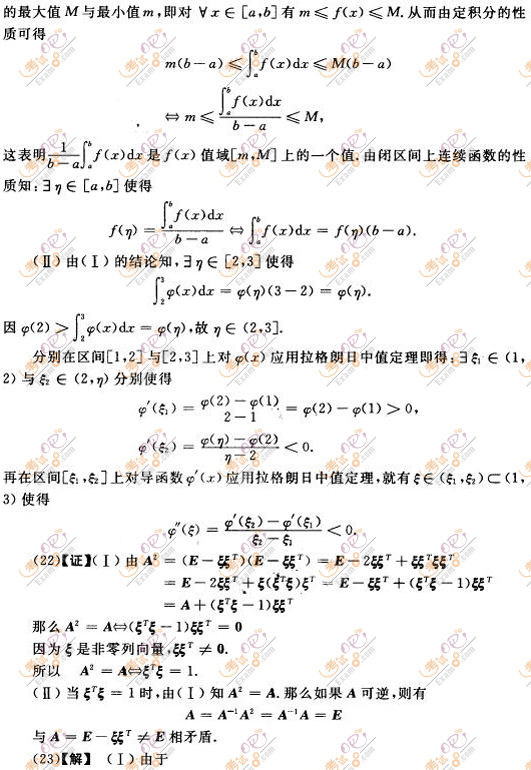 的最大值 M 与最小值 m,即对 ∀ x ∈ [a,b] 有 m ≤ f(x) ≤ M. 从而由定积分的性
质可得
m(b − a) ≤ ∫_a^b f(x)dx ≤ M(b − a)
⇔ m ≤ \frac{∫_a^b f(x)dx}{b − a} ≤ M,
这表明 \frac{1}{b−a}∫_a^b f(x)dx 是 f(x) 值域[m,M] 上的一个值. 由闭区间上连续函数的性
质知:∃ η ∈ [a,b] 使得
f(η) = \frac{∫_a^b f(x)dx}{b − a} ⇔ ∫_a^b f(x)dx = f(η)(b − a).
(Ⅱ) 由(Ⅰ) 的结论知,∃ η ∈ [2,3] 使得
∫_2^3 φ(x)dx = φ(η)(3 − 2) = φ(η).
因 φ(2) > ∫_2^3 φ(x)dx = φ(η),故 η ∈ (2,3].
分别在区间[1,2] 与[2,3] 上对 φ(x) 应用拉格朗日中值定理即得:∃ ξ₁ ∈ (1,
2) 与 ξ₂ ∈ (2,η) 分别使得
φ′(ξ₁) = \frac{φ(2) − φ(1)}{2 − 1} = φ(2) − φ(1) > 0,
φ′(ξ₂) = \frac{φ(η) − φ(2)}{η − 2} < 0.
再在区间[ξ₁,ξ₂] 上对导函数 φ′(x) 应用拉格朗日中值定理,就有 ξ ∈ (ξ₁,ξ₂) ⊂ (1,
3) 使得
φ″(ξ) = \frac{φ′(ξ₂) − φ′(ξ₁)}{ξ₂ − ξ₁} < 0.
(22)【证】(Ⅰ) 由 A² = (E − ξξᵀ)(E − ξξᵀ) = E − 2ξξᵀ + ξξᵀξξᵀ
= E − 2ξξᵀ + ξ(ξᵀξ)ξᵀ = E − ξξᵀ + (ξᵀξ − 1)ξξᵀ
= A + (ξᵀξ − 1)ξξᵀ
那么 A² = A ⇔ (ξᵀξ − 1)ξξᵀ = 0
因为 ξ 是非零列向量,ξξᵀ ≠ 0.
所以 A² = A ⇔ ξᵀξ = 1.
(Ⅱ) 当 ξᵀξ = 1 时,由(Ⅰ) 知 A² = A. 那么如果 A 可逆,则有
A = A⁻¹A² = A⁻¹A = E
与 A = E − ξξᵀ ≠ E 相矛盾.
(23)【解】 (Ⅰ) 由于